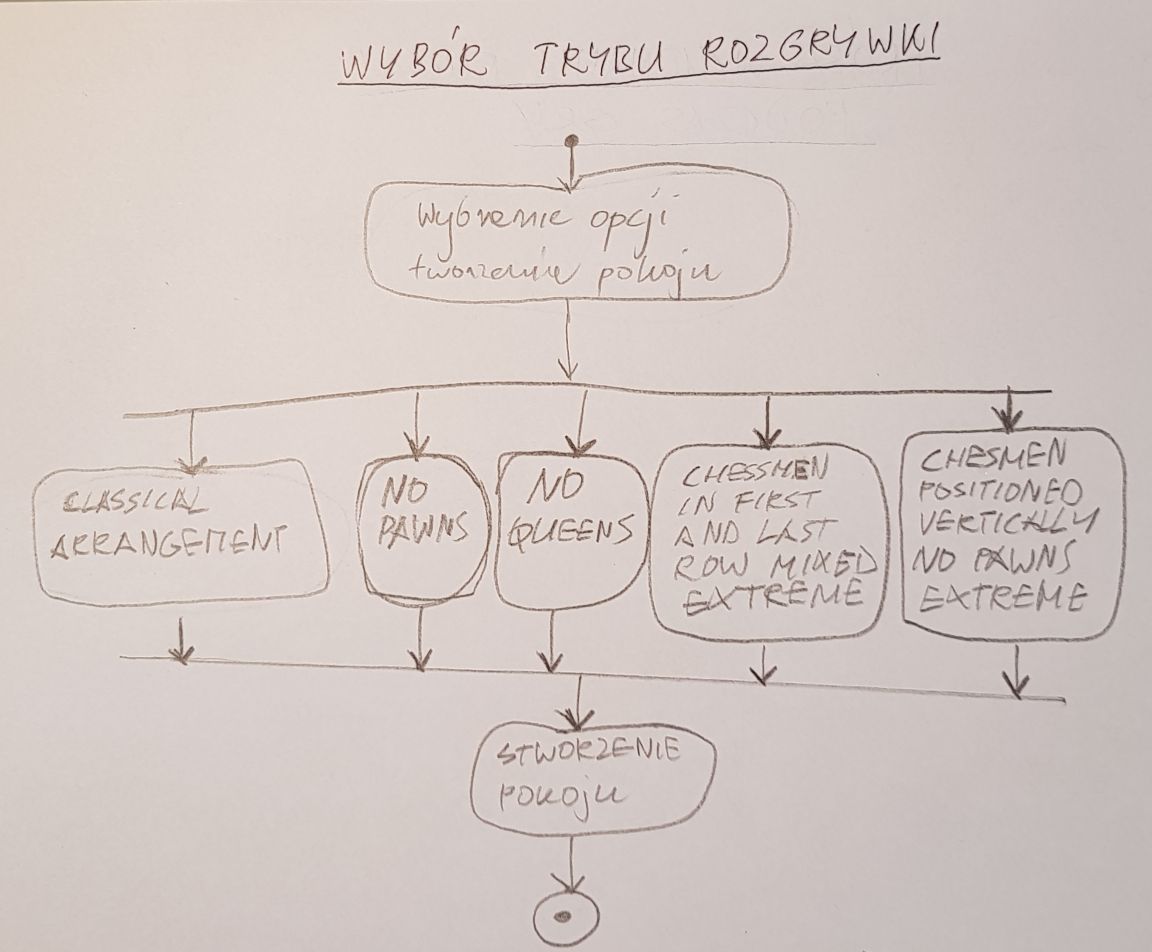 WYBÓR TRYBU ROZGRYWKI
Wybranie opcji
tworzenia pokoju
CLASSICAL
ARRANGEMENT
NO
PAWNS
NO
QUEENS
CHESSMEN
IN FIRST
AND LAST
ROW MIXED
EXTREME
CHESMEN
POSITIONED
VERTICALLY
NO PAWNS
EXTREME
STWORZENIE
POKOJU